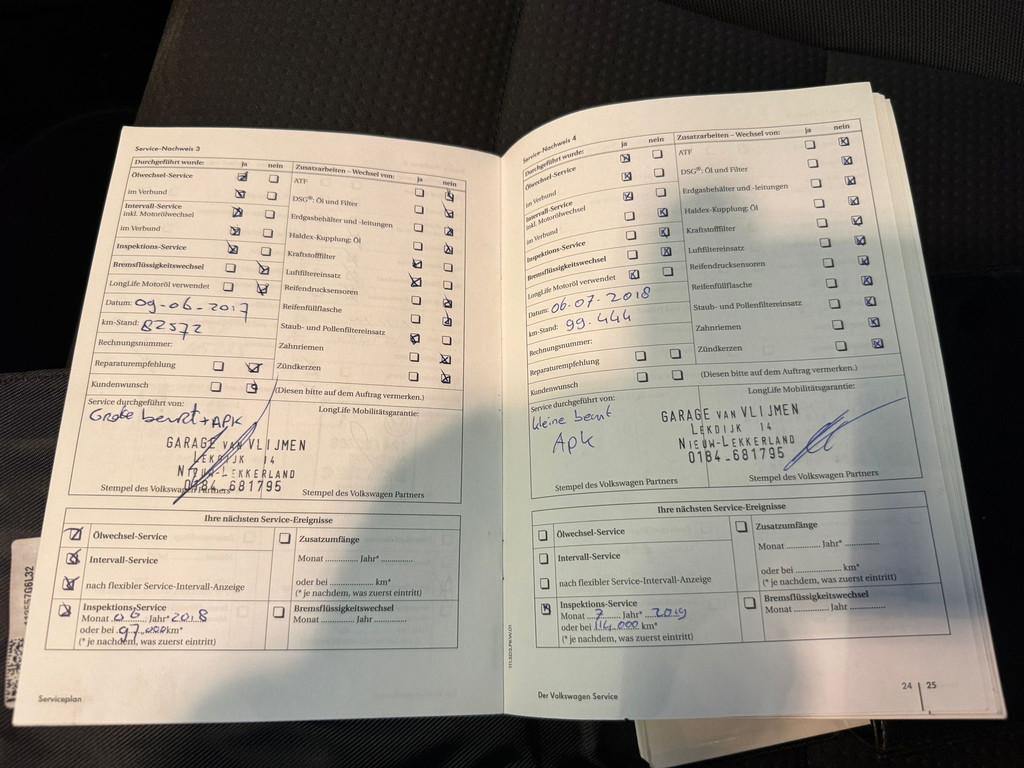 Service-Nachweis 3
Durchgeführt wurde: ja nein
Ölwechsel-Service
im Verbund
Intervall-Service
inkl. Motorölwechsel
im Verbund
Inspektions-Service
Bremsflüssigkeitswechsel
LongLife Motoröl verwendet
Datum: 09-06-2017
km-Stand: 82572
Rechnungsnummer:
Reparaturempfehlung
Kundenwunsch
Zusatzarbeiten – Wechsel von: ja nein
ATF
DSG®: Öl und Filter
Erdgasbehälter und -leitungen
Haldex-Kupplung: Öl
Kraftstofffilter
Luftfiltereinsatz
Reifendrucksensoren
Reifenfüllflasche
Staub- und Pollenfiltereinsatz
Zahnriemen
Zündkerzen
(Diesen bitte auf dem Auftrag vermerken.)
Service durchgeführt von:
LongLife Mobilitätsgarantie:
Grote beurt + APK
GARAGE VAN VLIJMEN
LEKDIJK 14
NIEUW-LEKKERLAND
0184-681795
Stempel des Volkswagen Partners
Stempel des Volkswagen Partners
Ihre nächsten Service-Ereignisse
Ölwechsel-Service
Intervall-Service
nach flexibler Service-Intervall-Anzeige
Inspektions-Service
Monat 06 Jahr* 2018
oder bei 97.000 km*
(* je nachdem, was zuerst eintritt)
Zusatzumfänge
Monat Jahr*
oder bei km*
(* je nachdem, was zuerst eintritt)
Bremsflüssigkeitswechsel
Monat Jahr
Serviceplan
Service-Nachweis 4
Durchgeführt wurde: ja nein
Ölwechsel-Service
im Verbund
Intervall-Service
inkl. Motorölwechsel
im Verbund
Inspektions-Service
Bremsflüssigkeitswechsel
LongLife Motoröl verwendet
Datum: 06-07-2018
km-Stand: 99.444
Rechnungsnummer:
Reparaturempfehlung
Kundenwunsch
Zusatzarbeiten – Wechsel von: ja nein
ATF
DSG®: Öl und Filter
Erdgasbehälter und -leitungen
Haldex-Kupplung: Öl
Kraftstofffilter
Luftfiltereinsatz
Reifendrucksensoren
Reifenfüllflasche
Staub- und Pollenfiltereinsatz
Zahnriemen
Zündkerzen
(Diesen bitte auf dem Auftrag vermerken.)
Service durchgeführt von:
LongLife Mobilitätsgarantie:
kleine beurt
Apk
GARAGE VAN VLIJMEN
LEKDIJK 14
NIEUW-LEKKERLAND
0184-681795
Stempel des Volkswagen Partners
Stempel des Volkswagen Partners
Ihre nächsten Service-Ereignisse
Ölwechsel-Service
Intervall-Service
nach flexibler Service-Intervall-Anzeige
Inspektions-Service
Monat 7 Jahr* 2019
oder bei 114.000 km*
(* je nachdem, was zuerst eintritt)
Zusatzumfänge
Monat Jahr*
oder bei km*
(* je nachdem, was zuerst eintritt)
Bremsflüssigkeitswechsel
Monat Jahr
Der Volkswagen Service
24 | 25